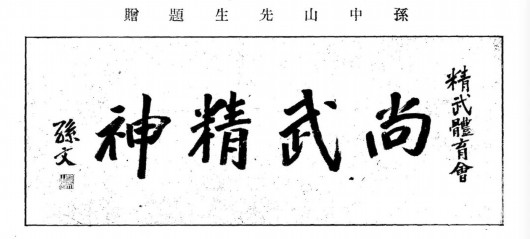 孫中山先生題贈
精武體育會
尚武精神
孫文